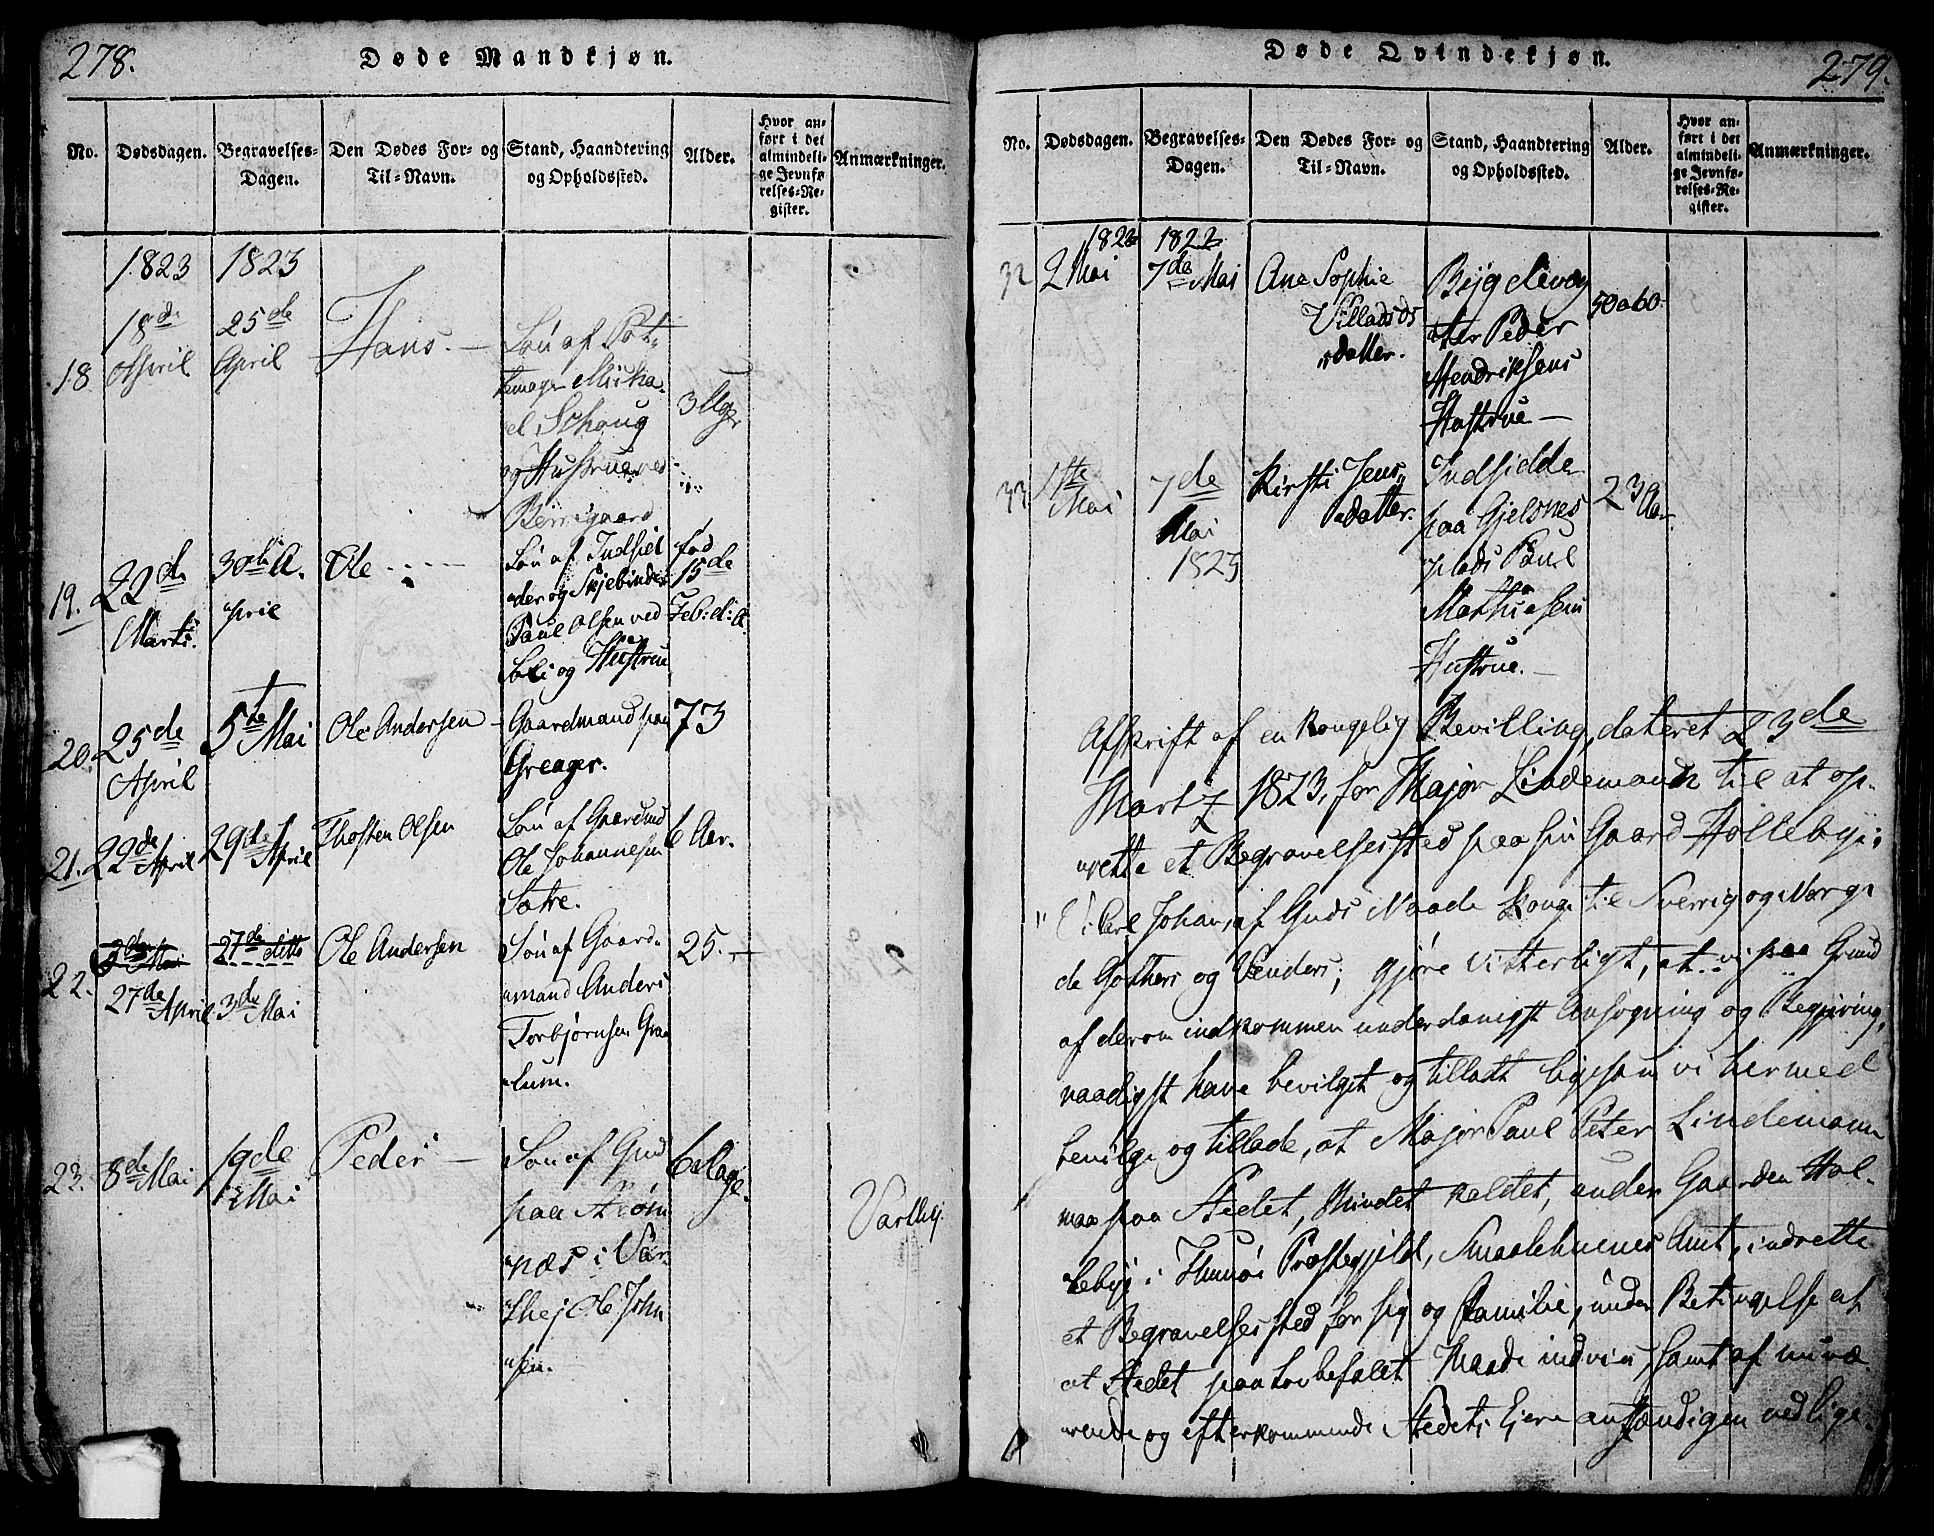 278.
Døde Mandkjøn.
No.
Dødsdagen.
Begravelses-
Dagen.
Den Dødes For- og
Til-Navn.
Stand, Haandtering
og Opholdssted.
Alder.
Hvor an-
ført i det
almindeli-
ge Jevnfø-
relses-Re-
gister.
Anmærkninger.
1823
1823
18
18de
April
25de
April
Hans. —
Søn af Pot-
temager Micha-
el Schoug
og Hustrue ved
Borregaard
3 Uger
19.
22de
Marti
30de A-
pril
Ole
Søn af Indsid
der og Skjebinder
Paul Olsen ved
Soli og Hustrue
fød
15de
Feb: d: A.
20.
25de
April
5te Mai
Ole Andersen —
Gaardmand paa
Greager.
73
21.
22de April
29de April
Thosten Olsen
Søn af Gaardmd
Ole Johannesen
Sætre.
6 Aar.
22.
3de Mai
27de ditto
27de April
3de Mai
Ole Andersen
Søn af Gaard-
mand Anders
Torbjørnsen Gra-
lum.
25. —
23.
8de Mai
19de
Mai
Peder —
Søn af Gmd
paa Strøm
næs i Var-
thej Ole John
sen.
6 Dage.
Varthej
279.
Døde Qvindekjøn.
No.
Dødsdagen.
Begravelses-
Dagen.
Den Dødes For- og
Til-Navn.
Stand, Haandtering
og Opholdssted.
Alder.
Hvor an-
ført i det
almindeli-
ge Jevnfø-
relses-Re-
gister.
Anmærkninger.
1823
1823
32
2 Mai
7de Mai
Ane Sophie
Villads
datter.
Peder
Hendriksens
Hustrue —
50 a 60
33
1ste
Mai
7de
Mai
1823
Kirsti Jens
datter.
Indsidder
paa Gjelsnes
plads Paul
Mathiesens
Hustrue. —
23 Aar
Afskrift af en kongelig Bevilling, dateret 23de
Martz 1823, for Major Lindemann til at op-
rette et Begravelsessted paa sin Gaard Hollebye:
"Vi Carl Johan, af Guds Naade Konge til Sverrig og Norge
de Gothers og Venders; gjøre vitterligt, at vi paa Grund
af derom indkommen underdanigst Ansøgning og Begjæring,
naadigst have bevilget og tilladt ligesom vi hermed
bevilge og tillade, at Major Paul Peter Lindemann
maa paa Stedet, Mindet kaldet, under Gaarden Hol-
lebye i Thunø Præstegjeld, Smaalehnenes Amt, indrette
et Begravelsessted for sig og Familie, under Betingelse at
at Stedet paa lovbefalet Maade indvies, samt af nuvæ-
rende og efterkommende Stedets Ejere anstændigen vedlige-